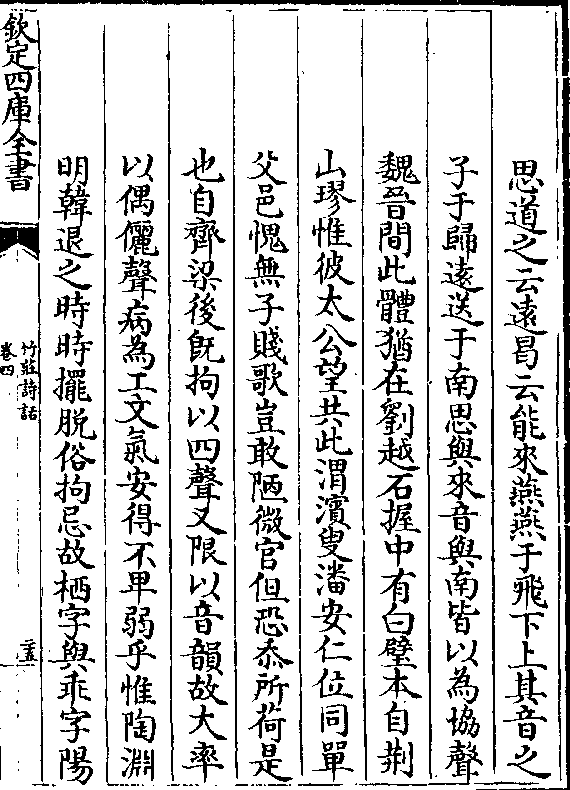 思道之云遠曷云能來燕燕于飛下上其音之
子于歸遠送于南思與來音與南皆以為協聲
魏晉間此體猶在劉越石握中有白璧本自荆
山璆惟彼太公望共此渭濱叟潘安仁位同單
父邑愧無子賤歌豈敢陋微官但恐忝所荷是
也自齊梁後既拘以四聲又限以音韻故大率
以偶儷聲病為工文氣安得不卑弱乎惟陶淵
明韓退之時時擺脱俗拘忌故栖字與乖字陽
欽定四庫全書
竹莊詩話
卷四
二五